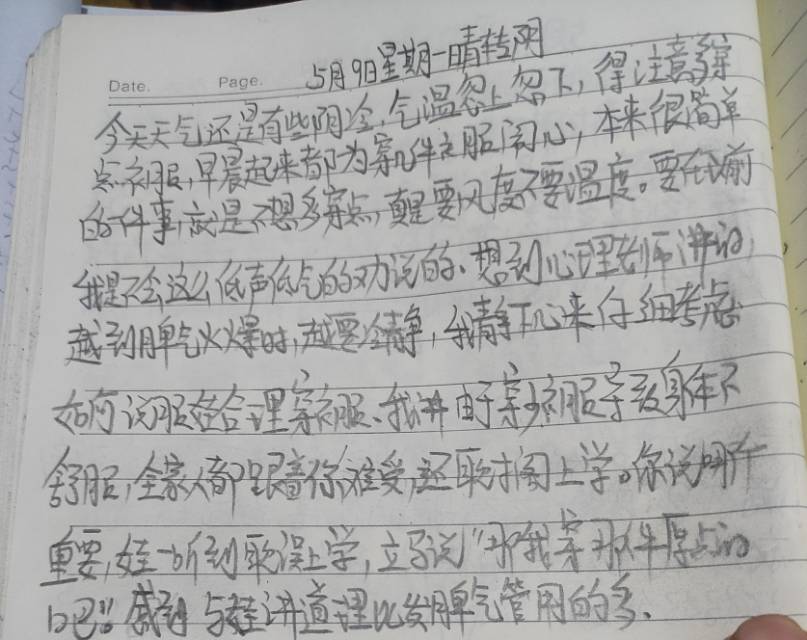 Date. Page. 5月9日星期一晴转阴
今天天气还是有些阴冷,气温忽上忽下,得注意多穿
点衣服,早晨起来都为穿几件衣服闹心,本来很简单
的一件事,就是不想多穿点,真是要风度不要温度。要在以前
我是不会这么低声低气的劝说的、想到心理老师讲的,
越到脾气火爆时,越要冷静,我静下心来仔细考虑
如何说服娃合理穿衣服、我讲由于穿少衣服导致身体不
舒服,全家人都跟着你难受,还耽搁上学。你说哪个
重要,娃一听到耽误上学,立马说"那我穿那件厚点的
吧"。感到与娃讲道理比发脾气管用的多、